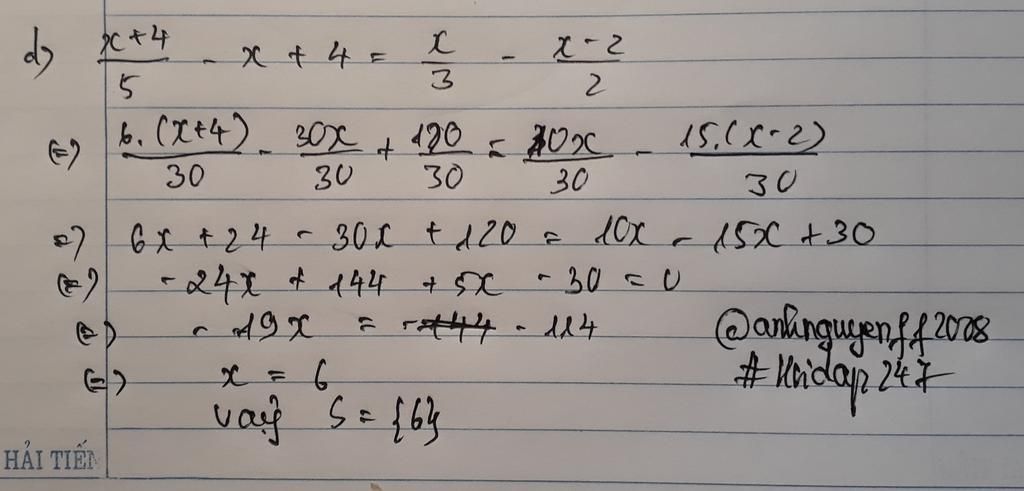 d) (x+4)/5 - x + 4 = x/3 - (x-2)/2
(=) 6.(x+4)/30 - 30x/30 + 120/30 = 10x/30 - 15.(x-2)/30
=) 6x + 24 - 30x + 120 = 10x - 15x + 30
(=) - 24x + 144 + 5x - 30 = 0
(=) - 19x = -144 - 114
@anhnguyenff2008
(=) x = 6
#Hoidap247
vậy S = {6}
HẢI TIẾN